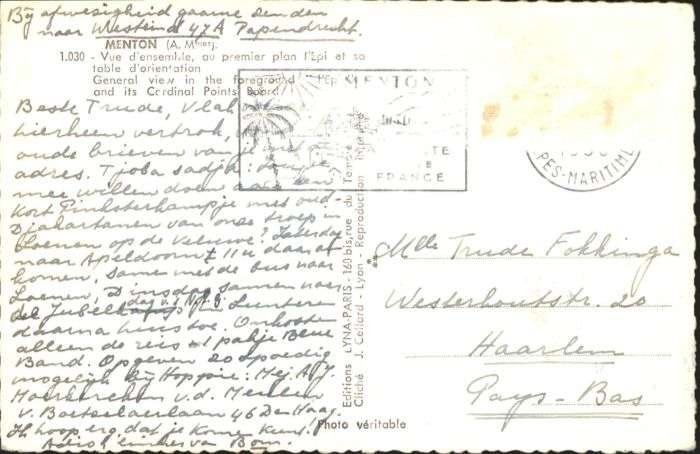 Bij afwezigheid gaarne zenden
naar Westeind 47A Papendrecht.
MENTON (A. Mmes).
1.030 - Vue d'ensemble, au premier plan l'Epi et sa
table d'orientation
General view in the foreground
and its Cardinal Points Board
Beste Trude, Vlak
hierheen vertrok,
oude brieven van je
adres. Tjoba sadja:
mee willen doen aan een
kort Pinksterkampje met oud-
Djakartanen van onze troep in
Loenen op de Veluwe? Zaterdag
naar Apeldoorn 11 u daar
komen, samen met de bus naar
Loenen, Dinsdag samen naar
de Jubel Lunteren
daarna huis toe. Onkosten
alleen de reis + 1 pakje Blue
Band. Opgeven zo spoedig
mogelijk bij Hoppie: Mej. A.J.
v.d. Meulen
v. Boetselaerlaan 46 Den Haag.
Ik hoop erg, dat je komen kunt.
van Bom.
MENTON
FRANCE
PES-MARITIME
Editions LYNA-PARIS - 160 bis, rue du Temple
Cliché J. Cellard - Lyon - Reproduction interdite
Photo véritable
Mlle Trude Fokkinga
Westerhoutstr. 20
Haarlem
Pays-Bas